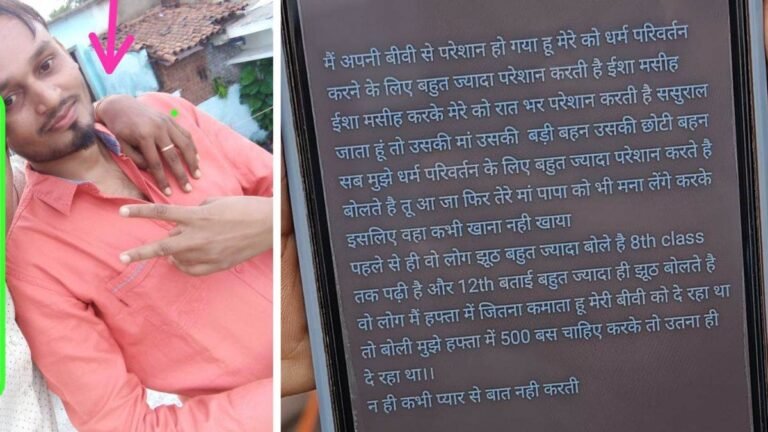 मैं अपनी बीवी से परेशान हो गया हू मेरे को धर्म परिवर्तन
करने के लिए बहुत ज्यादा परेशान करती है ईशा मसीह
ईशा मसीह करके मेरे को रात भर परेशान करती है ससुराल
जाता हूं तो उसकी मां उसकी बड़ी बहन उसकी छोटी बहन
सब मुझे धर्म परिवर्तन के लिए बहुत ज्यादा परेशान करते है
बोलते है तू आ जा फिर तेरे मां पापा को भी मना लेंगे करके
इसलिए वहा कभी खाना नही खाया
पहले से ही वो लोग झूठ बहुत ज्यादा बोले है 8th class
तक पढ़ी है और 12th बताई बहुत ज्यादा ही झूठ बोलते है
वो लोग मैं हफ्ता में जितना कमाता हू मेरी बीवी को दे रहा था
तो बोली मुझे हफ्ता में 500 बस चाहिए करके तो उतना ही
दे रहा था।।
न ही कभी प्यार से बात नही करती